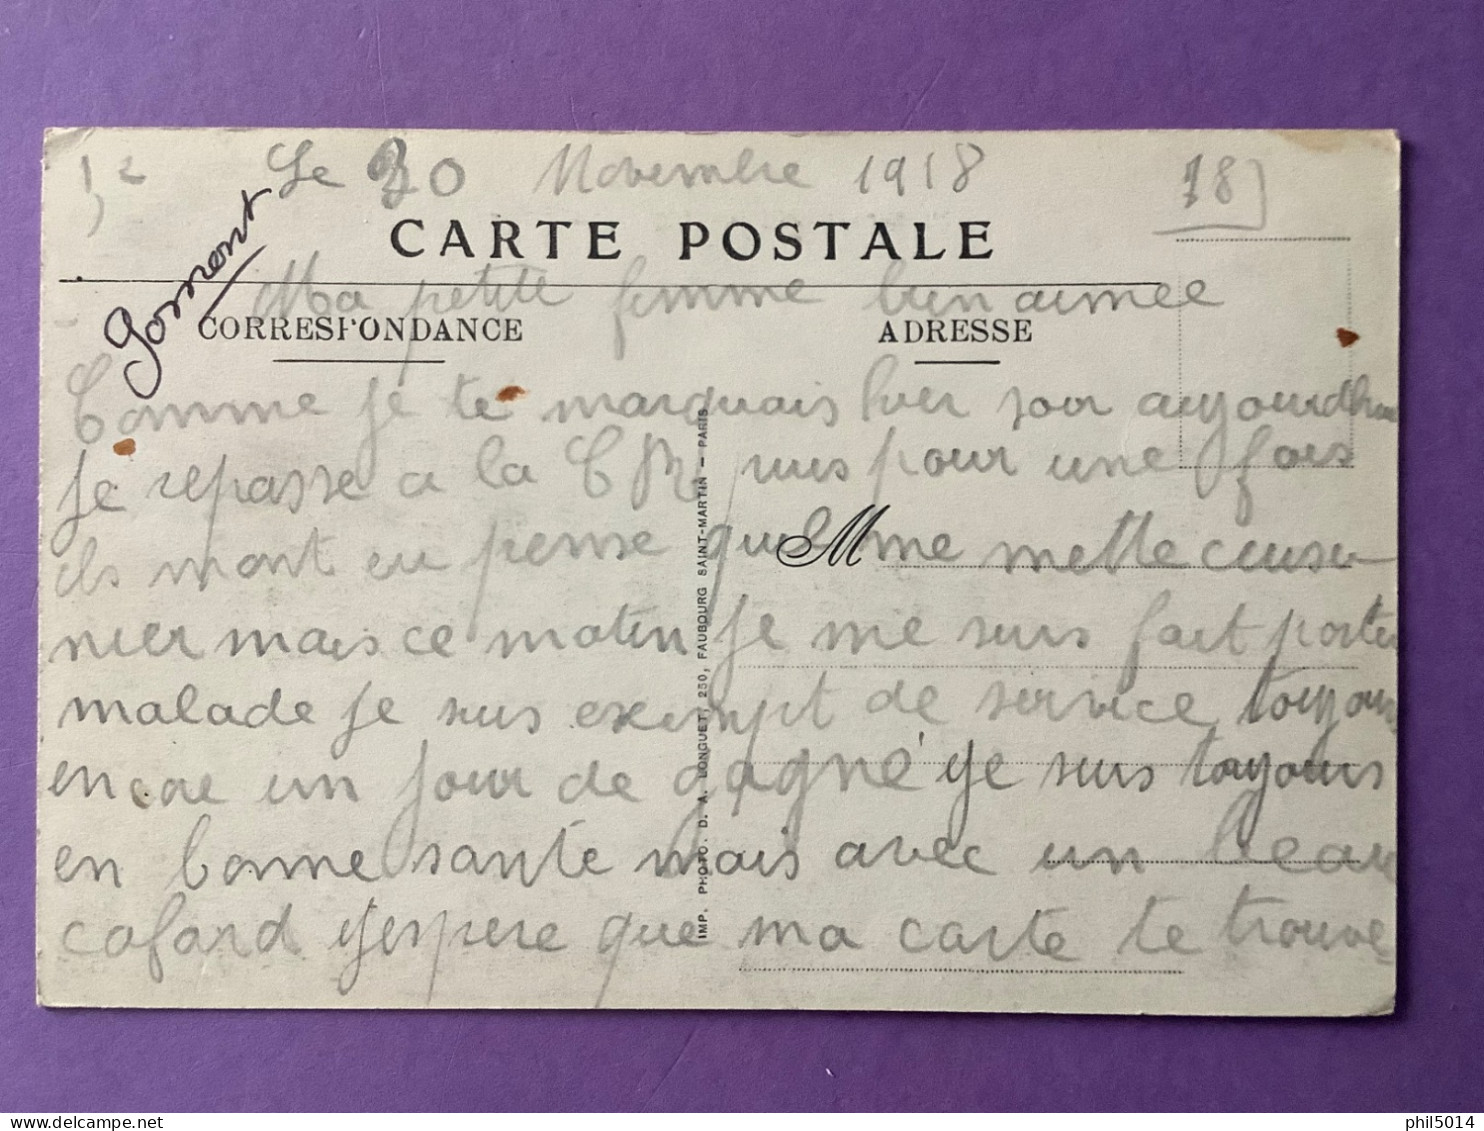 1,2 Le 20 Novembre 1918 18)
CARTE POSTALE
Gomont
Ma petite femme bien aimee
CORRESPONDANCE ADRESSE
Comme je te marquais hier soir aujourdhui
je repasse a la C R mis pour une fois
ils mont eu pense quil me mette cuisi
M
nier mais ce matin je me suis fait porter
malade je suis exempt de service toujours
encore un jour de gagné je suis toujours
en bonne sante mais avec un beau
cafard jespere que ma carte te trouve
IMP. PHOTO. D. A. LONGUET, 250, FAUBOURG SAINT-MARTIN - PARIS
phil5014